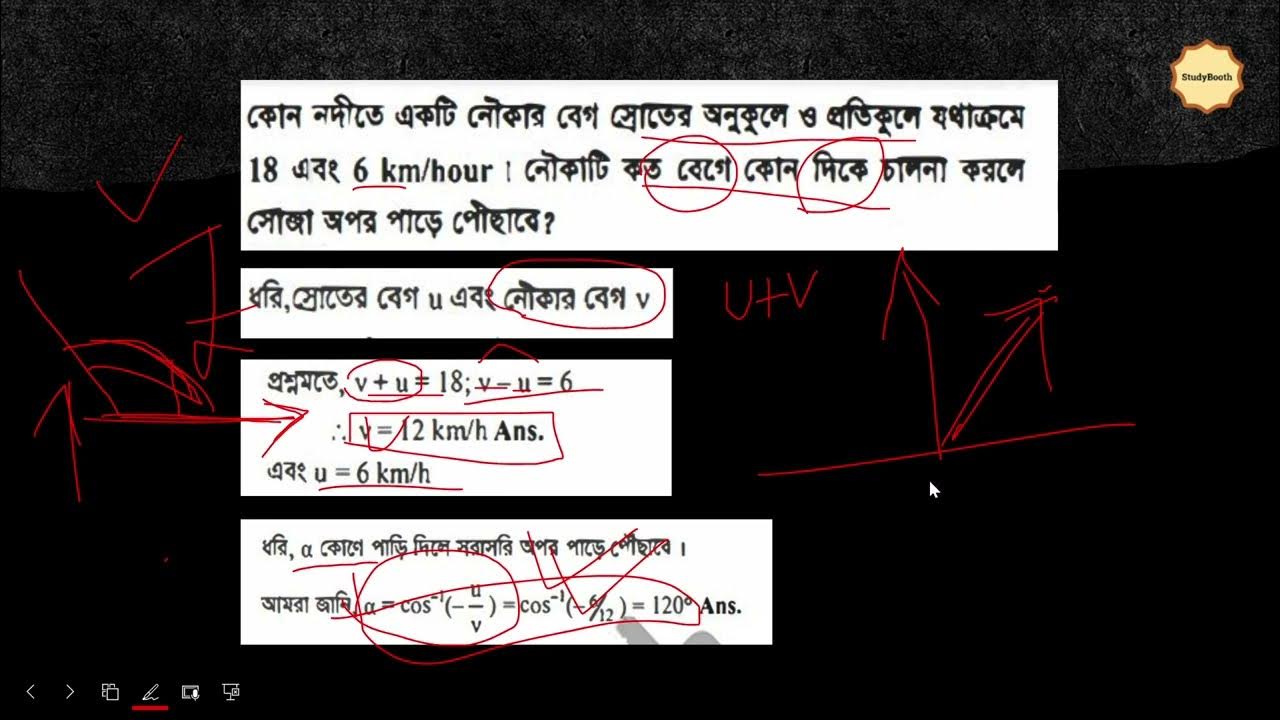 StudyBooth
কোন নদীতে একটি নৌকার বেগ স্রোতের অনুকুলে ও প্রতিকুলে যথাক্রমে
18 এবং 6 km/hour। নৌকাটি কত বেগে কোন দিকে চালনা করলে
সোজা অপর পাড়ে পৌছাবে?
ধরি,স্রোতের বেগ u এবং নৌকার বেগ v
U+V
প্রশ্নমতে, v + u = 18; v – u = 6
∴ v = 12 km/h Ans.
এবং u = 6 km/h
ধরি, α কোণে পাড়ি দিলে সরাসরি অপর পাড়ে পৌছাবে।
আমরা জানি, α = cos⁻¹(–u/v) = cos⁻¹(–6/12) = 120° Ans.